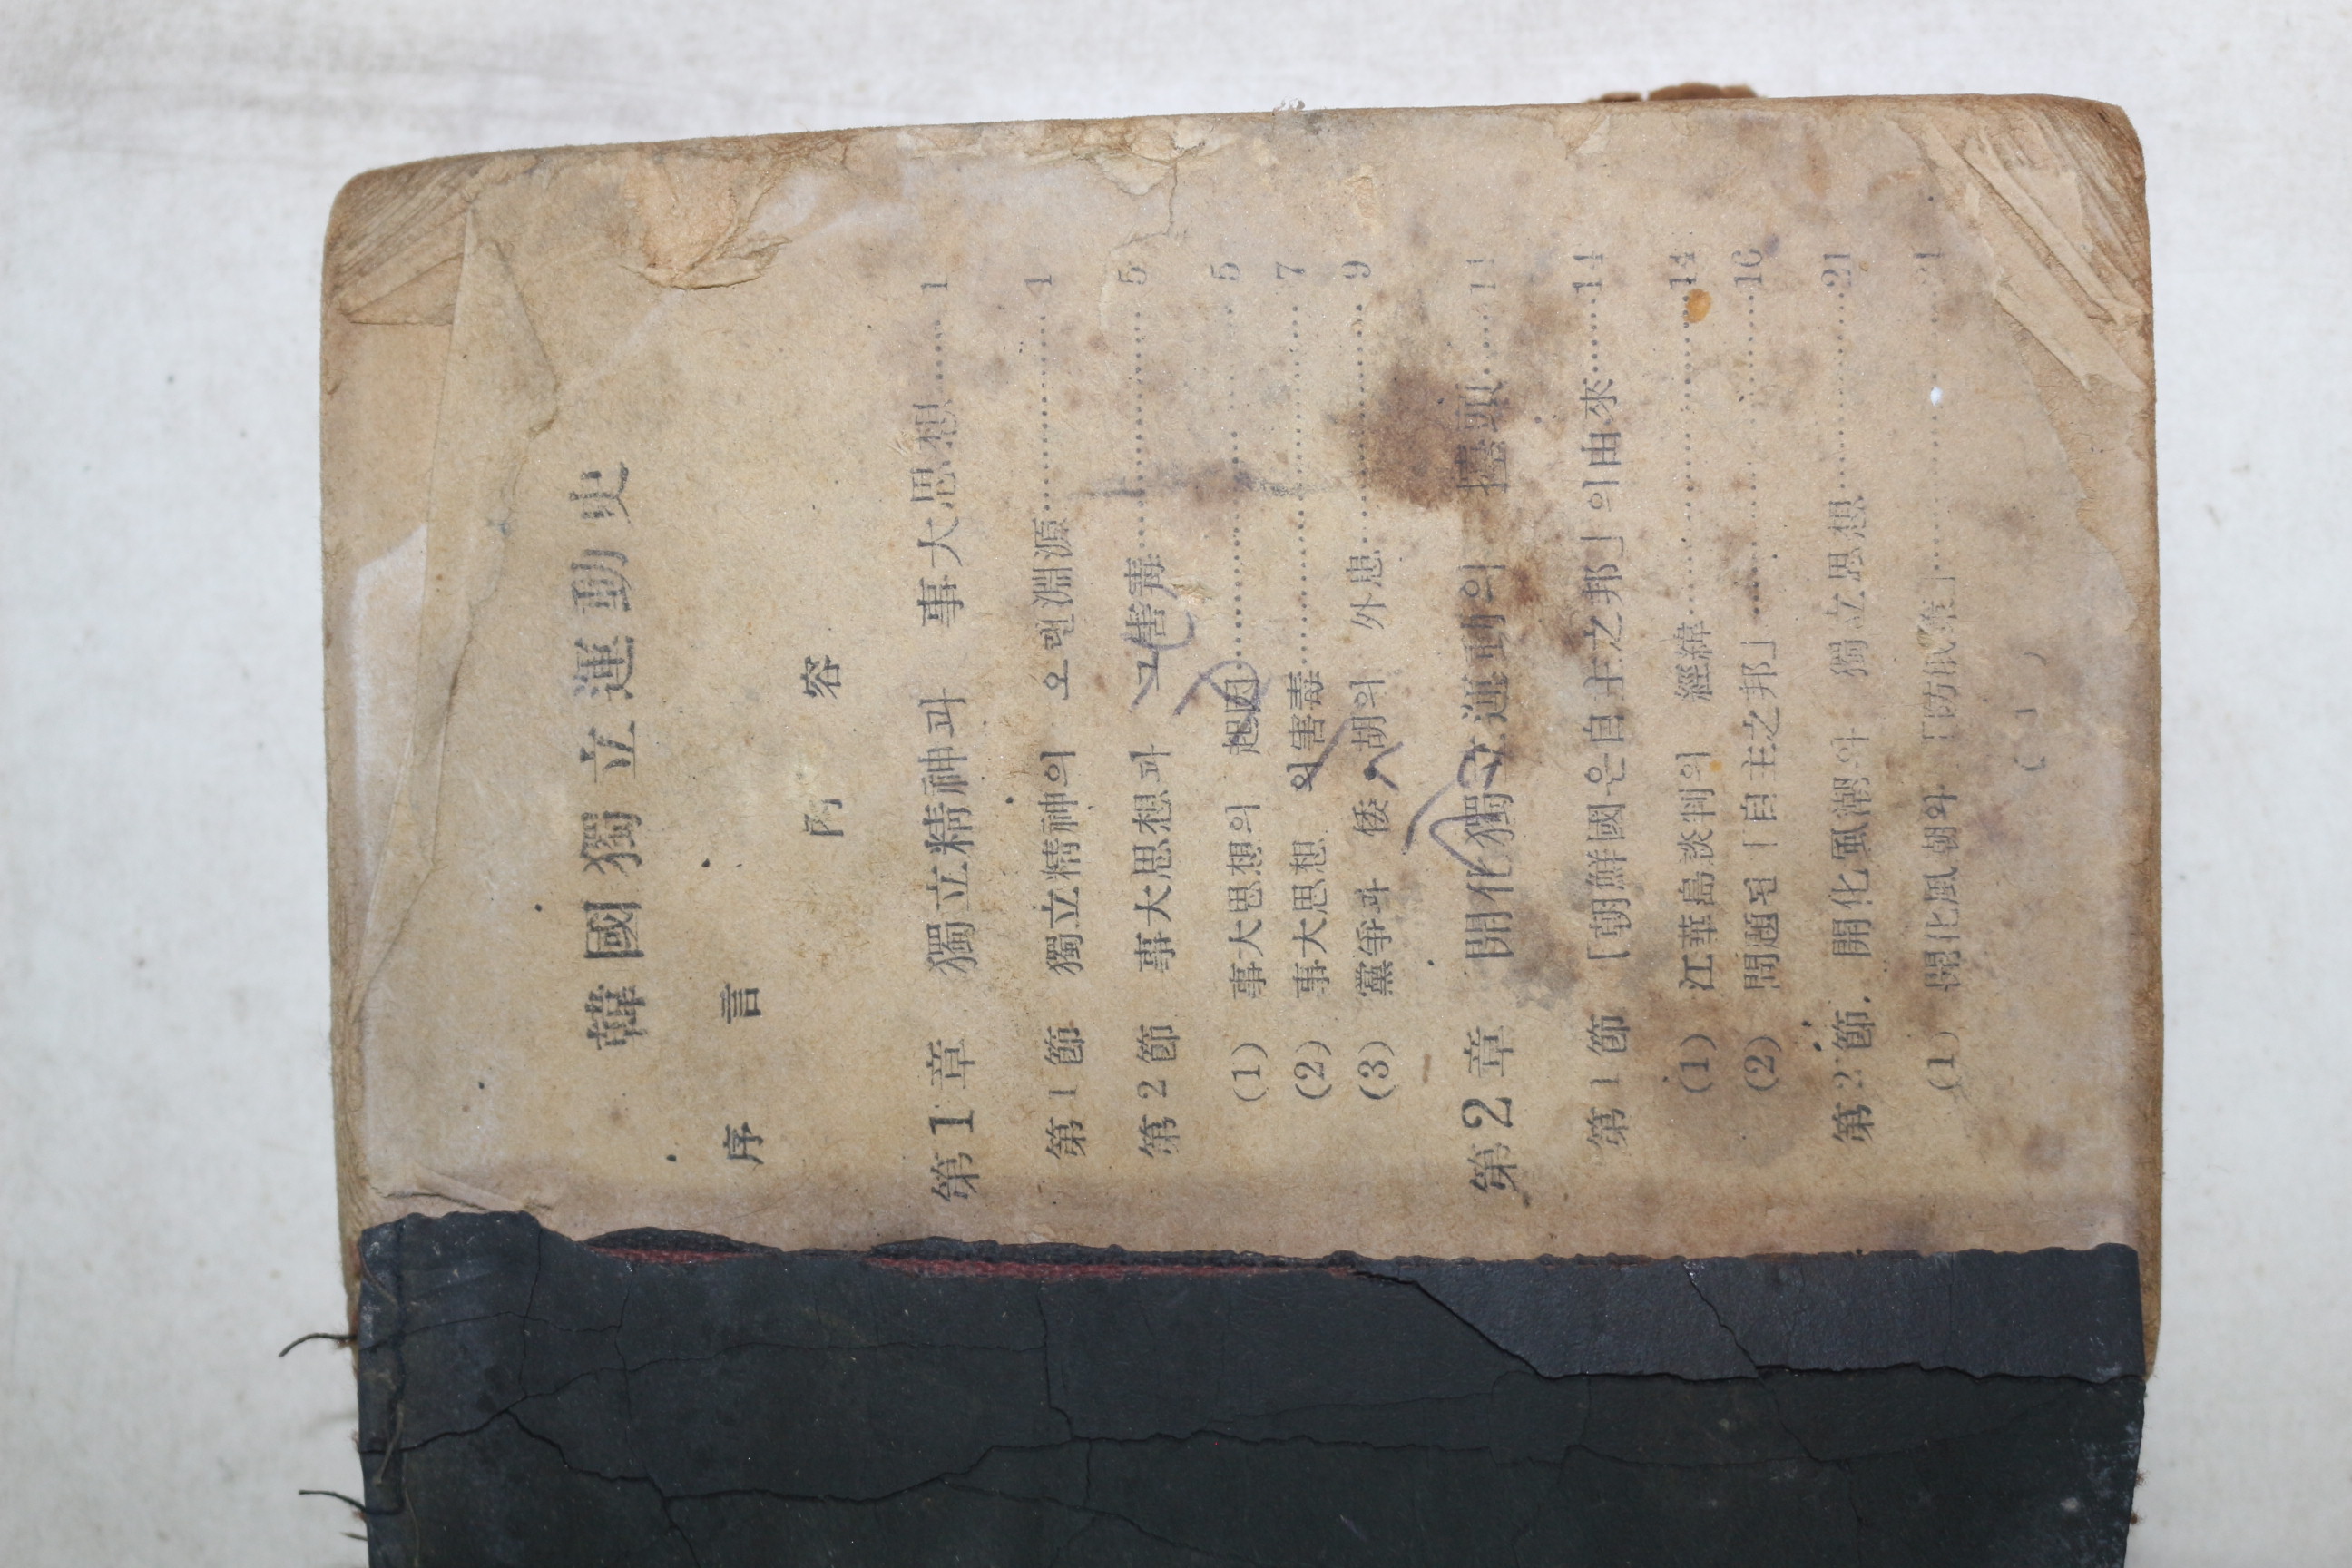 韓國獨立運動史
序 言
內 容
第1章 獨立精神과 事大思想…… 1
第1節 獨立精神의 오랜淵源…………… 1
第2節 事大思想과 그害毒……………… 5
(1) 事大思想의 起因……………………… 5
(2) 事大思想 의害毒……………………… 7
(3) 黨爭과 倭・胡의 外患……………… 9
第2章 開化獨立運動의 擡頭……
第1節 「朝鮮國은自主之邦」의由來……14
(1) 江華島談判의 經緯……………………14
(2) 問題된「自主之邦」……………………16
第2節. 開化風潮와 獨立思想……………21
(1) 開化風潮와
( 1 )